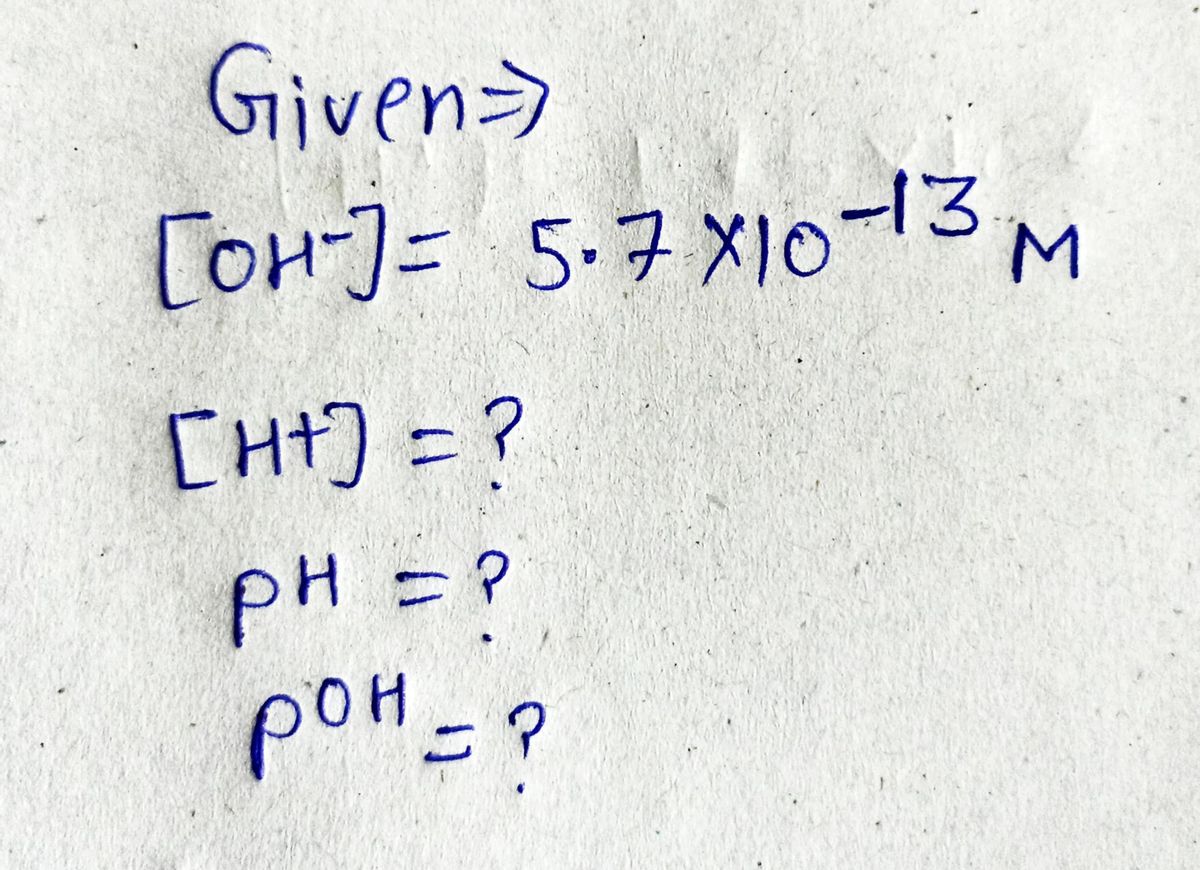 Given⇒
[OH⁻] = 5.7 X10⁻¹³ M
[H+] = ?
pH = ?
pOH = ?